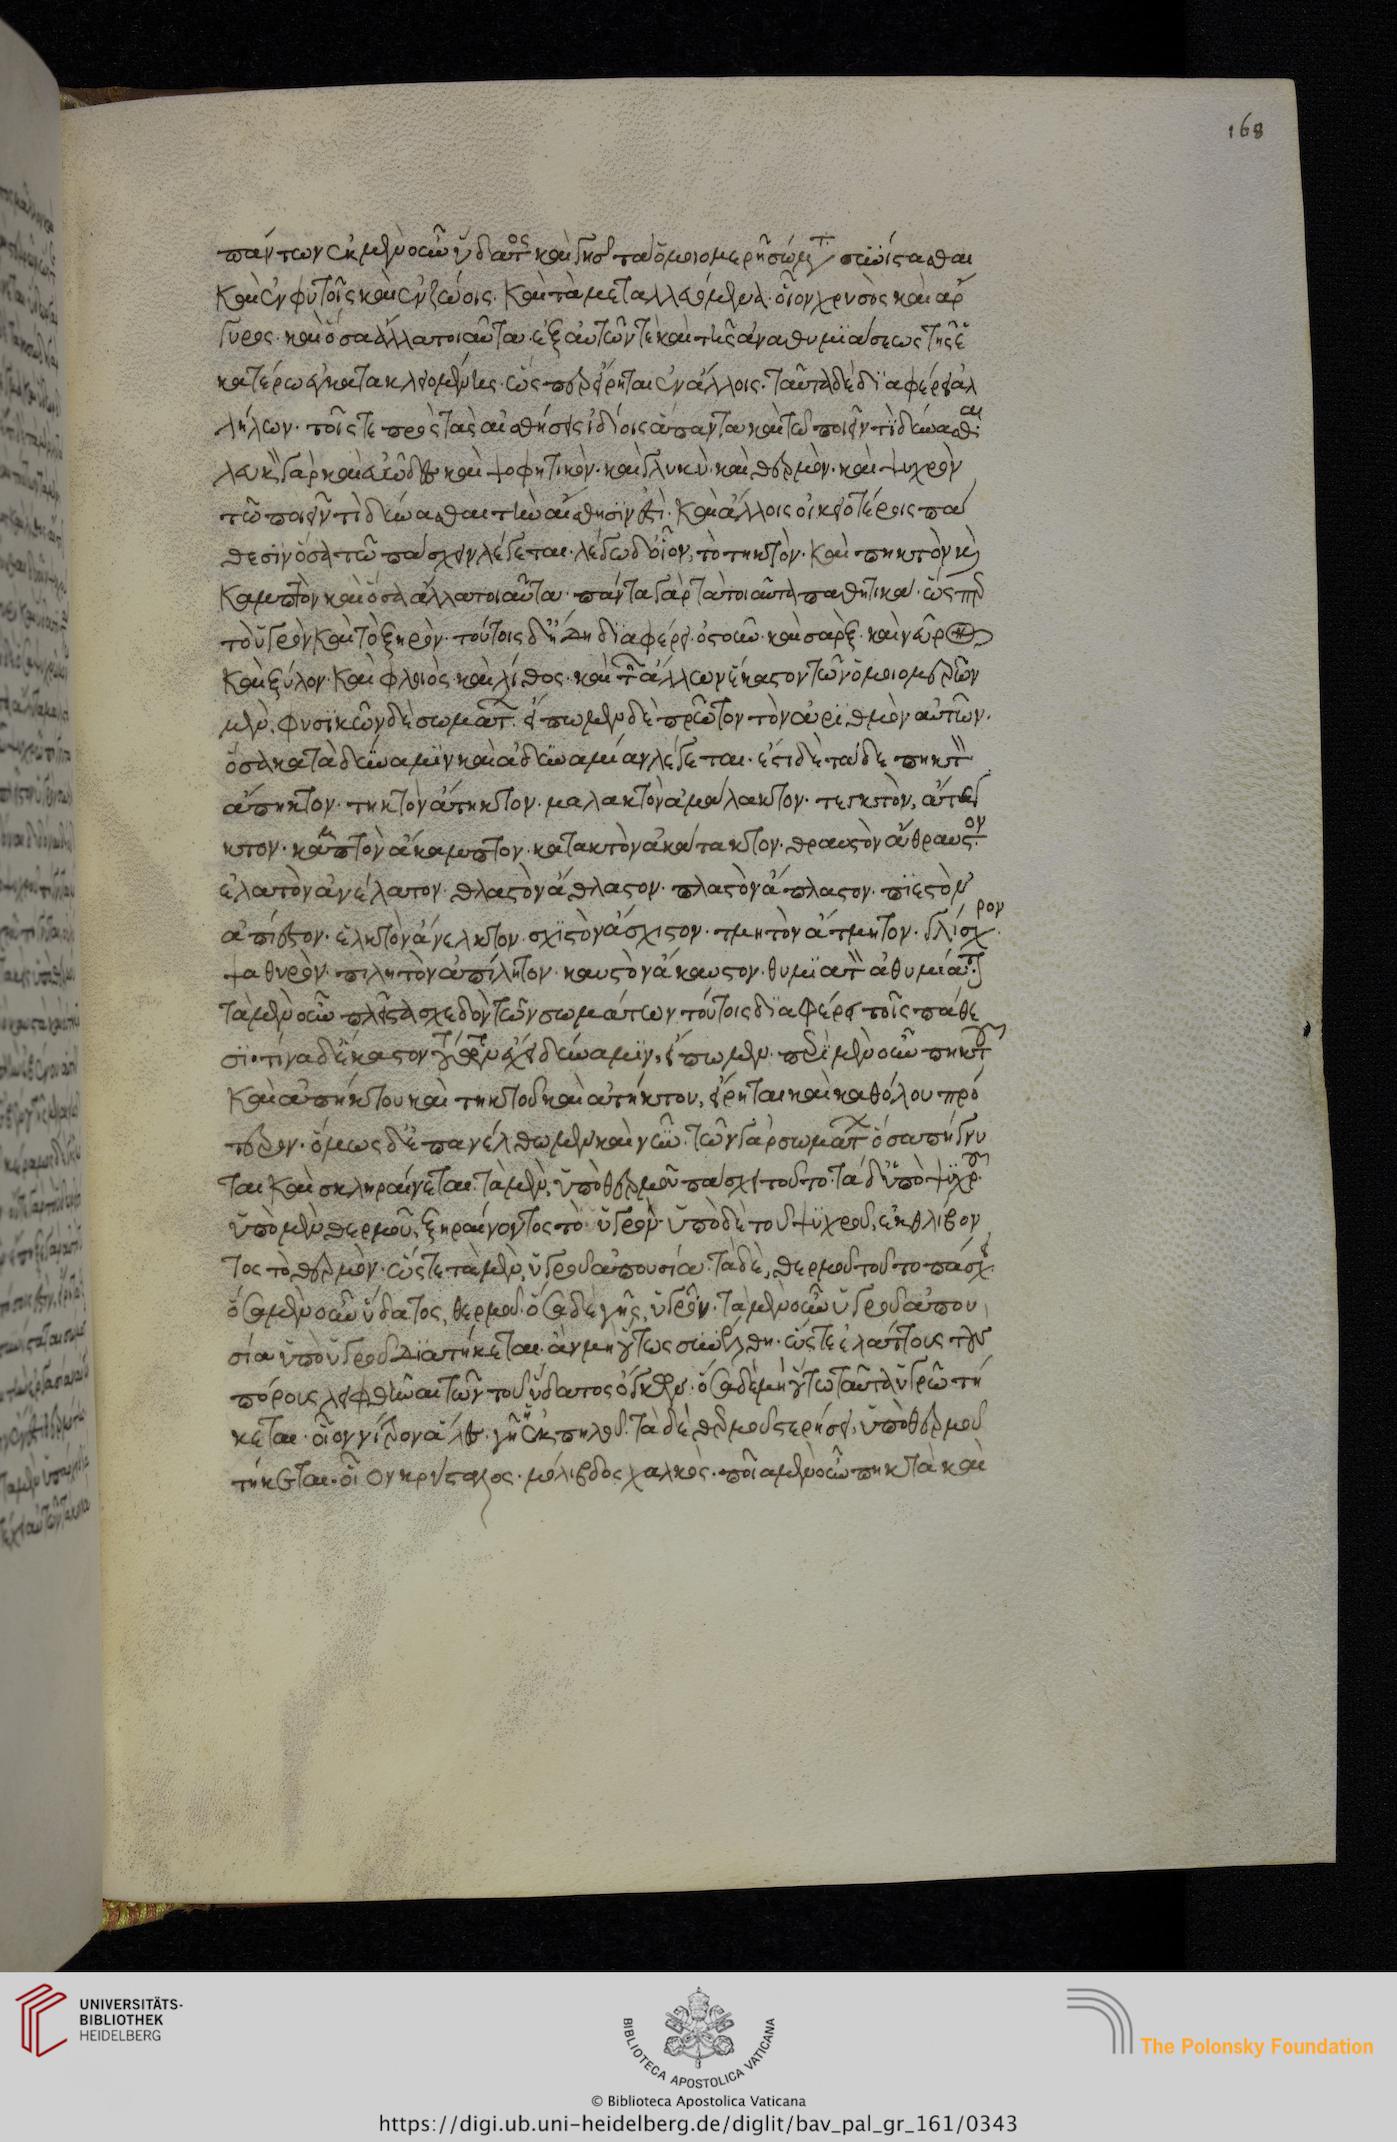 168
πάντων ἐκ μὲν οὖν ὕδατος καὶ γῆς τὰ ὁμοιομερῆ σώματα συνίστασθαι
καὶ ἐν φυτοῖς καὶ ἐν ζώοις· καὶ τὰ μεταλλευόμενα· οἷον χρυσὸς καὶ ἄρ
γυρος· καὶ ὅσα ἄλλα τοιαῦτα· ἐξ αὐτῶν τὲ καὶ τῆς ἀναθυμϊάσεως τῆς ἑ
κατέρω ἐγκατακλειομένης· ὥσπερ εἴρηται ἐν ἄλλοις· ταῦτα δὲ δϊαφέρει ἀλ
λήλων· τοῖς τε πρὸς τὰς αἰσθήσεις ἰδίοις ἅπαντα καὶ τῶ ποιεῖν τὶ δύνασθαι·
λευκὸν γὰρ καὶ εὐῶδες καὶ ψοφητικὸν· καὶ γλυκὺ· καὶ θερμὸν· καὶ ψυχρὸν
τῶ ποιεῖν τὶ δύνασθαι τὴν αἴσθησϊν ἐστὶ· καὶ ἄλλοις οἰκειοτέροις πά
θεσϊν ὅσα τῶ πάσχειν λέγεται· λέγω δ' οἷον, τὸ τηκτὸν· καὶ πηκτὸν καὶ
καμπτὸν καὶ ὅσα ἄλλα τοιαῦτα· πάντα γὰρ τὰ τοιαῦτα παθητικὰ· ὥσπερ
τὸ ὑγρὸν καὶ τὸ ξηρὸν· τούτοις δ' ἤδη δϊαφέρει· ὀστοῦν· καὶ σὰρξ· καὶ νεῦρον
καὶ ξύλον· καὶ φλοιὸς καὶ λίθος· καὶ τῶν ἄλλων ἕκαστον τῶν ὁμοιομερῶν
μὲν, φυσϊκῶν δὲ σωμάτων· εἴπωμεν δὲ πρῶτον τὸν ἀρϊθμὸν αὐτῶν·
ὅσα κατὰ δύναμϊν καὶ ἀδυναμίαν λέγεται· ἔστι δὲ τάδε πηκτὸν
ἄπηκτον· τηκτὸν ἄτηκτον· μαλακτὸν ἀμάλακτον· τεγκτὸν, ἄτεγ
κτον· καμπτὸν ἄκαμπτον· κατακτὸν ἀκάτακτον· θραυστὸν ἄθραυστον·
ἐλατὸν ἀνέλατον· θλαστὸν ἄθλαστον· πλαστὸν ἄπλαστον· πϊεστὸν
ἀπίεστον· ἑλκτὸν ἀνελκτον· σχϊστὸν ἄσχιστον· τμητὸν ἄτμητον· γλίσχρον·
ψαθυρὸν· πιλητὸν ἀπίλητον· καυστὸν ἄκαυστον· θυμϊατὸν ἀθυμίατον·
τὰ μὲν οὖν πλεῖστα σχεδὸν τῶν σωμάτων τούτοις δϊαφέρει τοῖς πάθε
σϊ· τίνα δ' ἕκαστον τούτων ἔχει δύναμϊν, εἴπωμεν· περὶ μὲν οὖν πηκτοῦ
καὶ ἀπήκτου καὶ τηκτοῦ καὶ ἀτήκτου, εἴρηται καὶ καθόλου πρό
τερον· ὅμως δ' ἐπανέλθωμεν καὶ νῦν· τῶν γὰρ σωμάτων ὅσα πήγνυ
ται καὶ σκληραίνεται· τὰ μὲν, ὑπὸ θερμοῦ πάσχει τοῦτο· τὰ δ' ὑπὸ ψϋχροῦ
ὑπὸ μὲν θερμοῦ, ξηραίνοντος τὸ ὑγρὸν· ὑπὸ δὲ τοῦ ψϋχροῦ, ἐκθλίβον
τος τὸ θερμὸν· ὥστε τὰ μὲν, ὑγροῦ ἀπουσία· τὰ δὲ, θερμοῦ τοῦτο πάσχει·
ὅσα μὲν οὖν ὕδατος, θερμοῦ· ὅσα δὲ γῆς, ὑγροῦ· τὰ μὲν οὖν ὑγροῦ ἀπου
σία ὑπὸ ὑγροῦ δϊατήκεται· ἂν μὴ οὕτως συνέλθη· ὥστε ἐλάττους τοὺς
πόρους λειφθῆναι τῶν τοῦ ὕδατος ὄγκων· ὅσα δὲ μὴ οὕτω ταῦτα ὑγρῶ τή
κεται· οἷον νίτρον ἅλες· γῆ ἡ ἐκ πηλοῦ· τὰ δὲ θερμοῦ στερήσει, ὑπὸ θερμοῦ
τήκεται· οἷον κρύσταλλος· μόλιβδος χαλκὸς· ποῖα μὲν οὖν πηκτὰ καὶ
UNIVERSITÄTS-
BIBLIOTHEK
HEIDELBERG
BIBLIOTECA APOSTOLICA VATICANA
The Polonsky Foundation
© Biblioteca Apostolica Vaticana
https://digi.ub.uni-heidelberg.de/diglit/bav_pal_gr_161/0343